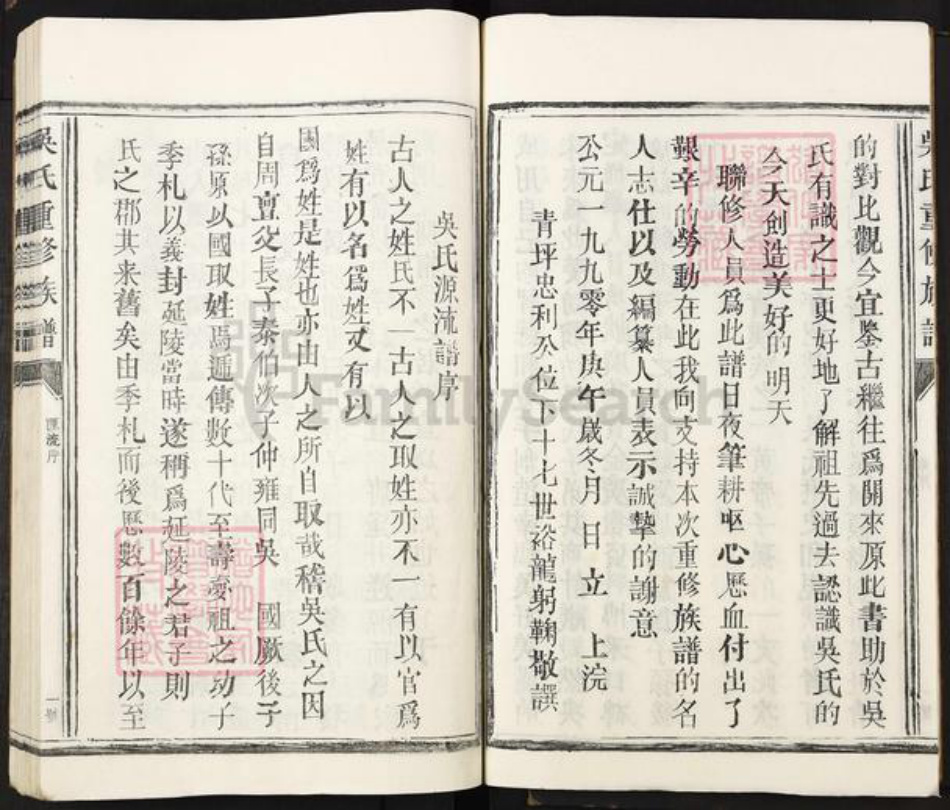 的對比觀今宜鑒古繼往爲開來原此書助於吳
氏有識之士更好地了解祖先過去認識吳氏的
今天創造美好的明天
聯修人員爲此譜日夜筆耕嘔心歷血付出了
艱辛的勞動在此我向支持本次重修族譜的名
人志仕以及編纂人員表示誠摯的謝意
公元一九九零年庚午嵗冬月日立上浣
青坪忠利公位下十七世裕龍躬鞠敬譔
吳氏源流譜序
古人之姓氏不一古人之取姓亦不一有以官爲
姓有以名爲姓又有以
國爲姓是姓也亦由人之所自取哉稽吳氏之因
自周亶父長子泰伯次子仲雍同吳國厥後子
孫原以國取姓焉遞傳數十代至壽夢祖之功子
季札以義封延陵當時遂稱爲延陵之君子則
氏之郡其来舊矣由季札而後歷數百餘年以至
吳氏重修族譜
源流序
一號
FamilySearch